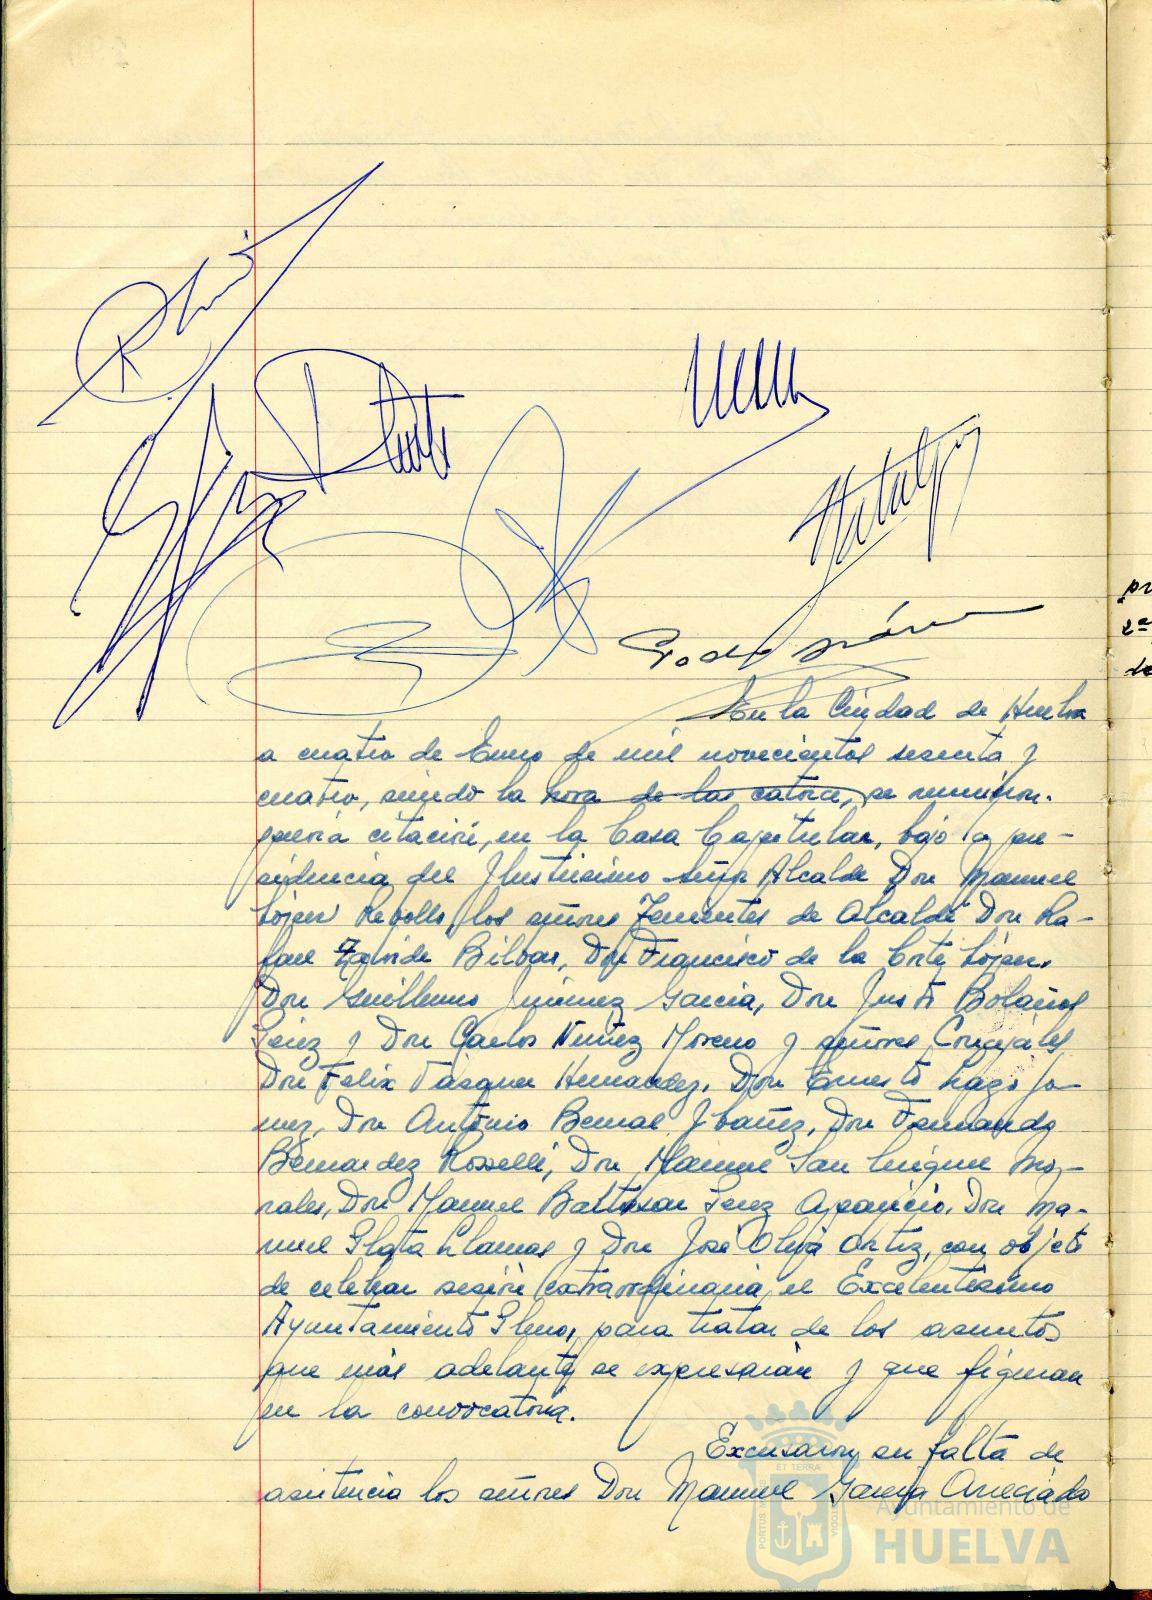 En la Ciudad de Huelva
a cuatro de Enero de mil novecientos sesenta y
cuatro, siendo la hora de las catorce, se reunieron.
previa citación, en la Casa Capitular, bajo la pre-
sidencia del Ilustrisimo señor Alcalde Don Manuel
López Rebollo, los señores Tenientes de Alcalde Don Ra-
fael Bilbao, Don Francisco de la Corte López,
Don Guillermo Jimenez Garcia, Don Justo Bolaños
Perez y Don Carlos Nuñez Moreno y señores Concejales
Don Felix Vazquez Hernandez, Don Ernesto Lazo Jo-
mez, Don Antonio Bernal Ibañez, Don Fernando
Bernardez Rosselli, Don Manuel San Miguel Mo-
rales, Don Manuel Baltasar Perez Aparicio, Don Ma-
nuel Plata Llamas y Don José Oliva Ortiz, con objeto
de celebrar sesión extraordinaria el Excelentísimo
Ayuntamiento Pleno, para tratar de los asuntos
que más adelante se expresarán y que figuran
en la convocatoria.
Excusaron su falta de
asistencia los señores Don Manuel
pr
2ª
de
ET TERRAE
PORTUS MARIS
CUSTODIA
Ayuntamiento de
HUELVA